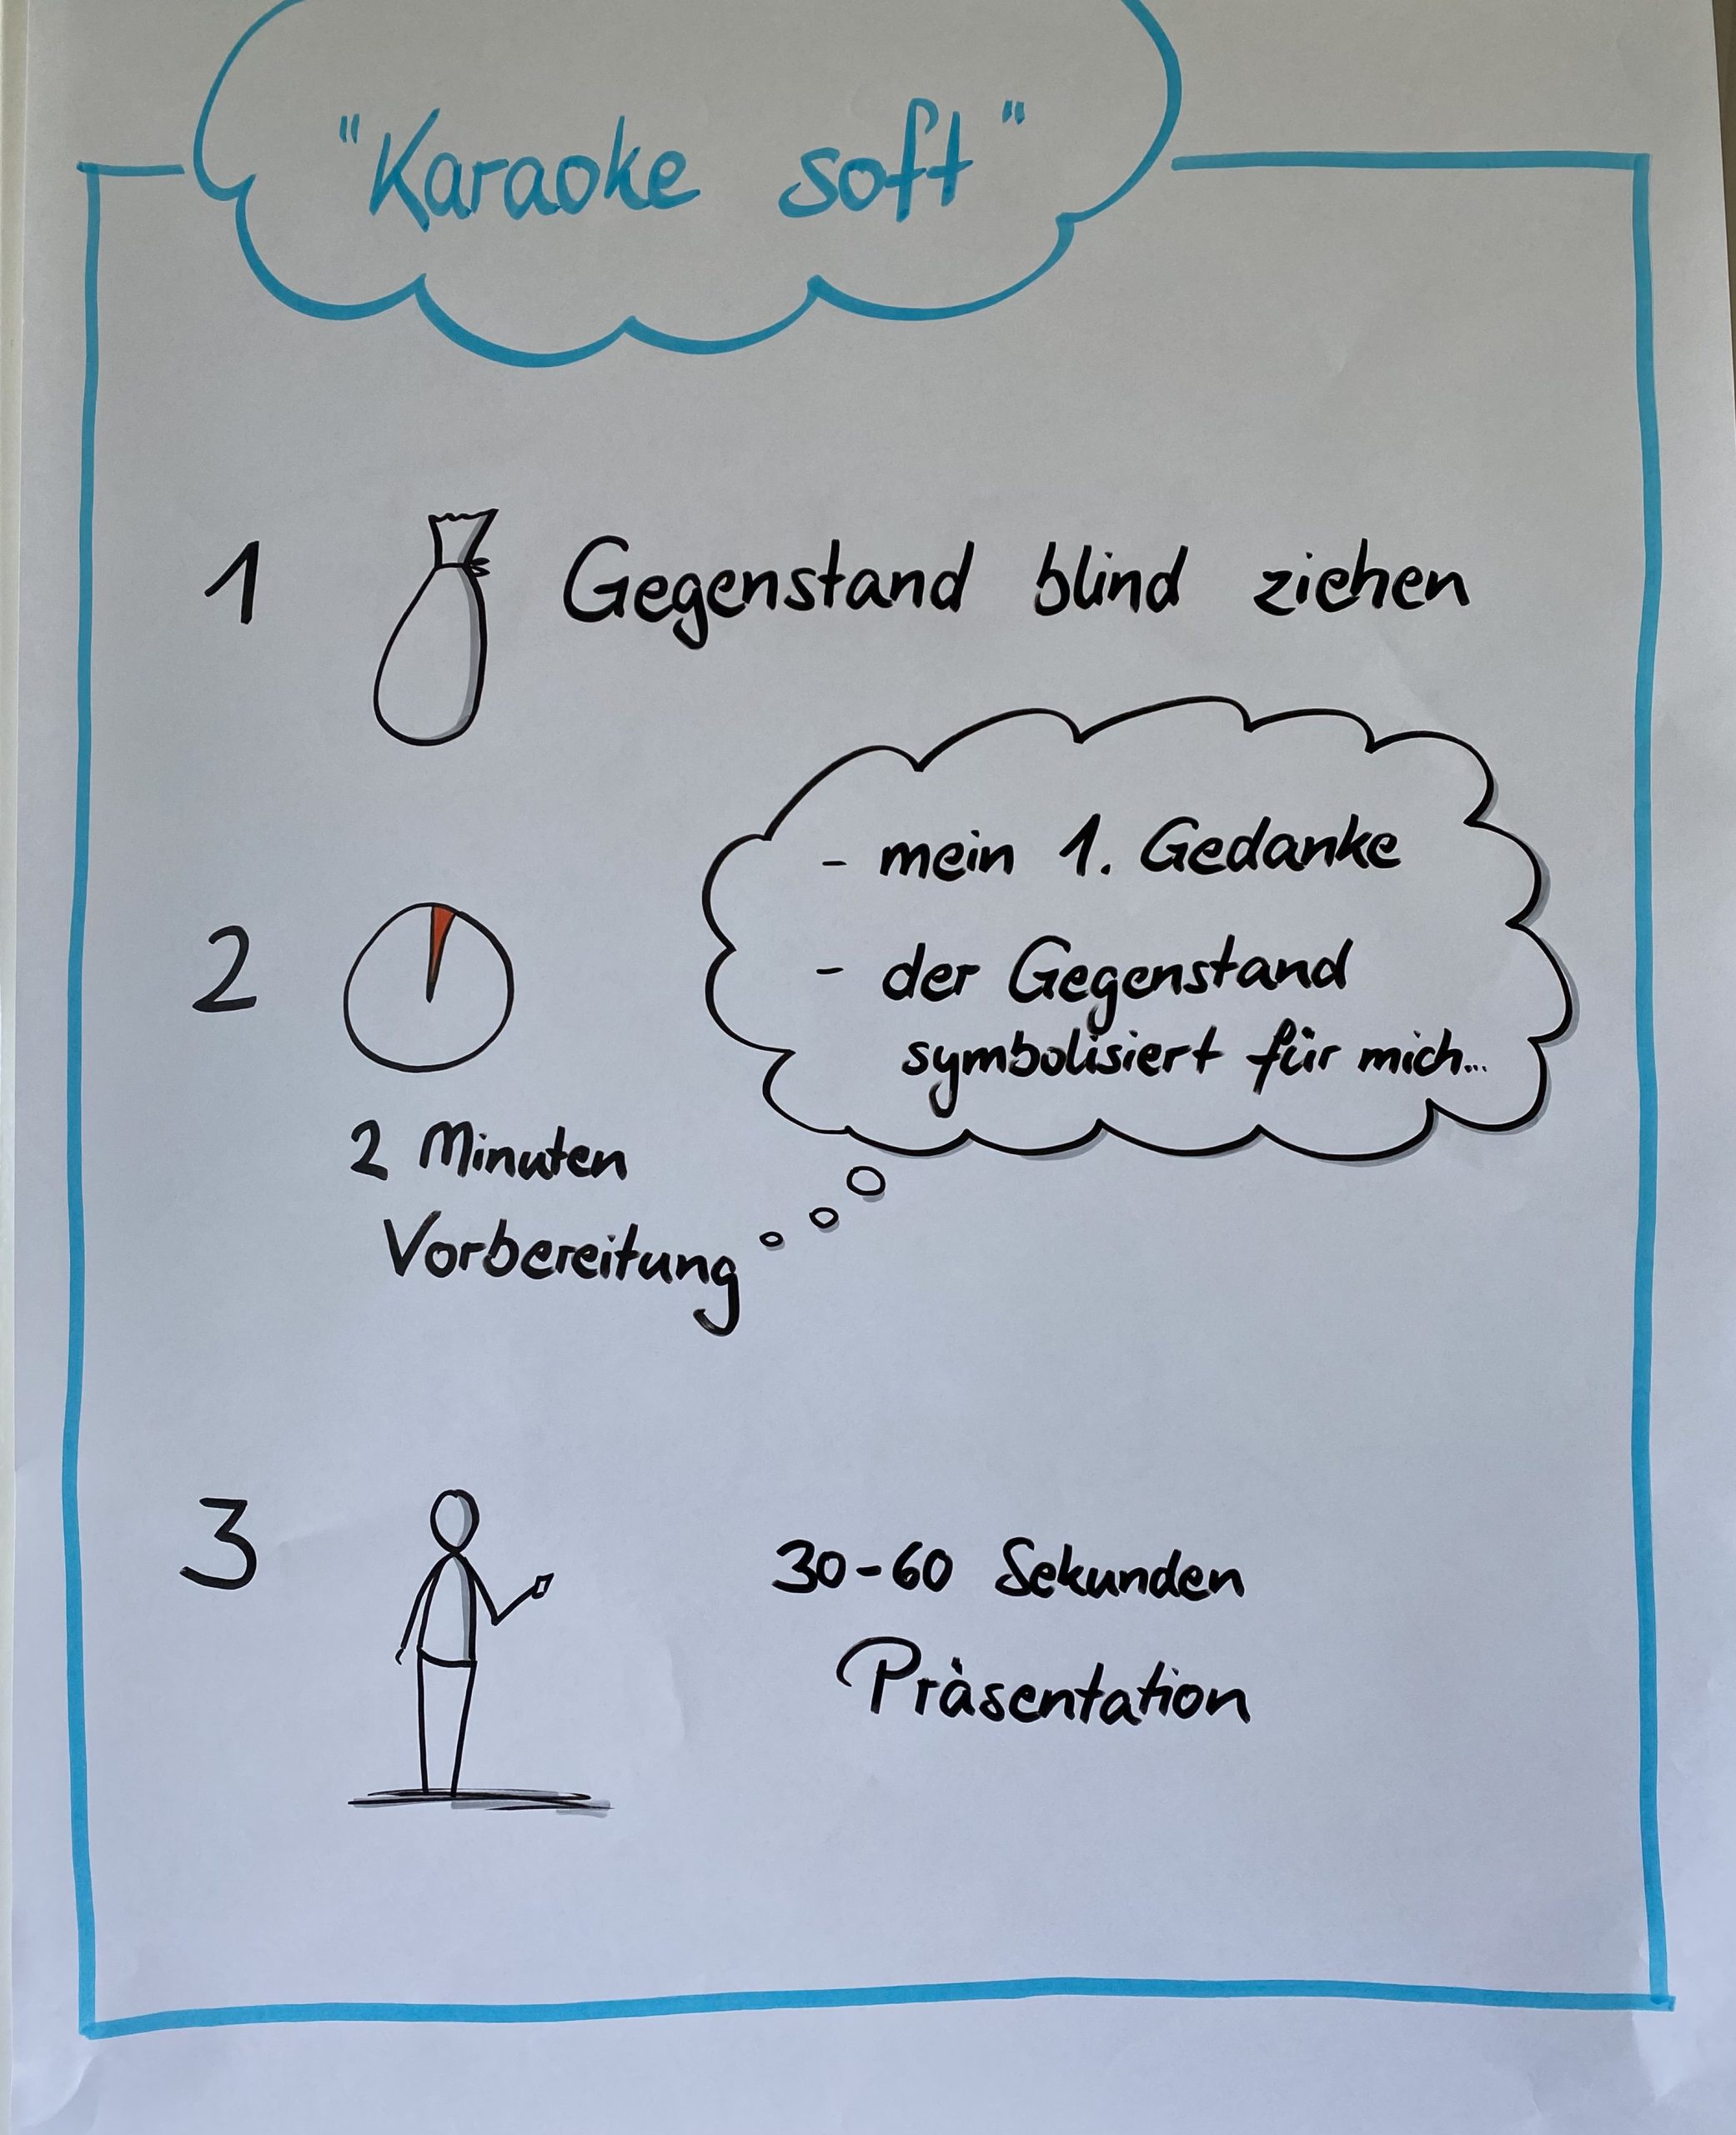 "Karaoke soft"
1 Gegenstand blind ziehen
2
- mein 1. Gedanke
- der Gegenstand
symbolisiert für mich...
2 Minuten
Vorbereitung
3
30-60 Sekunden
Präsentation